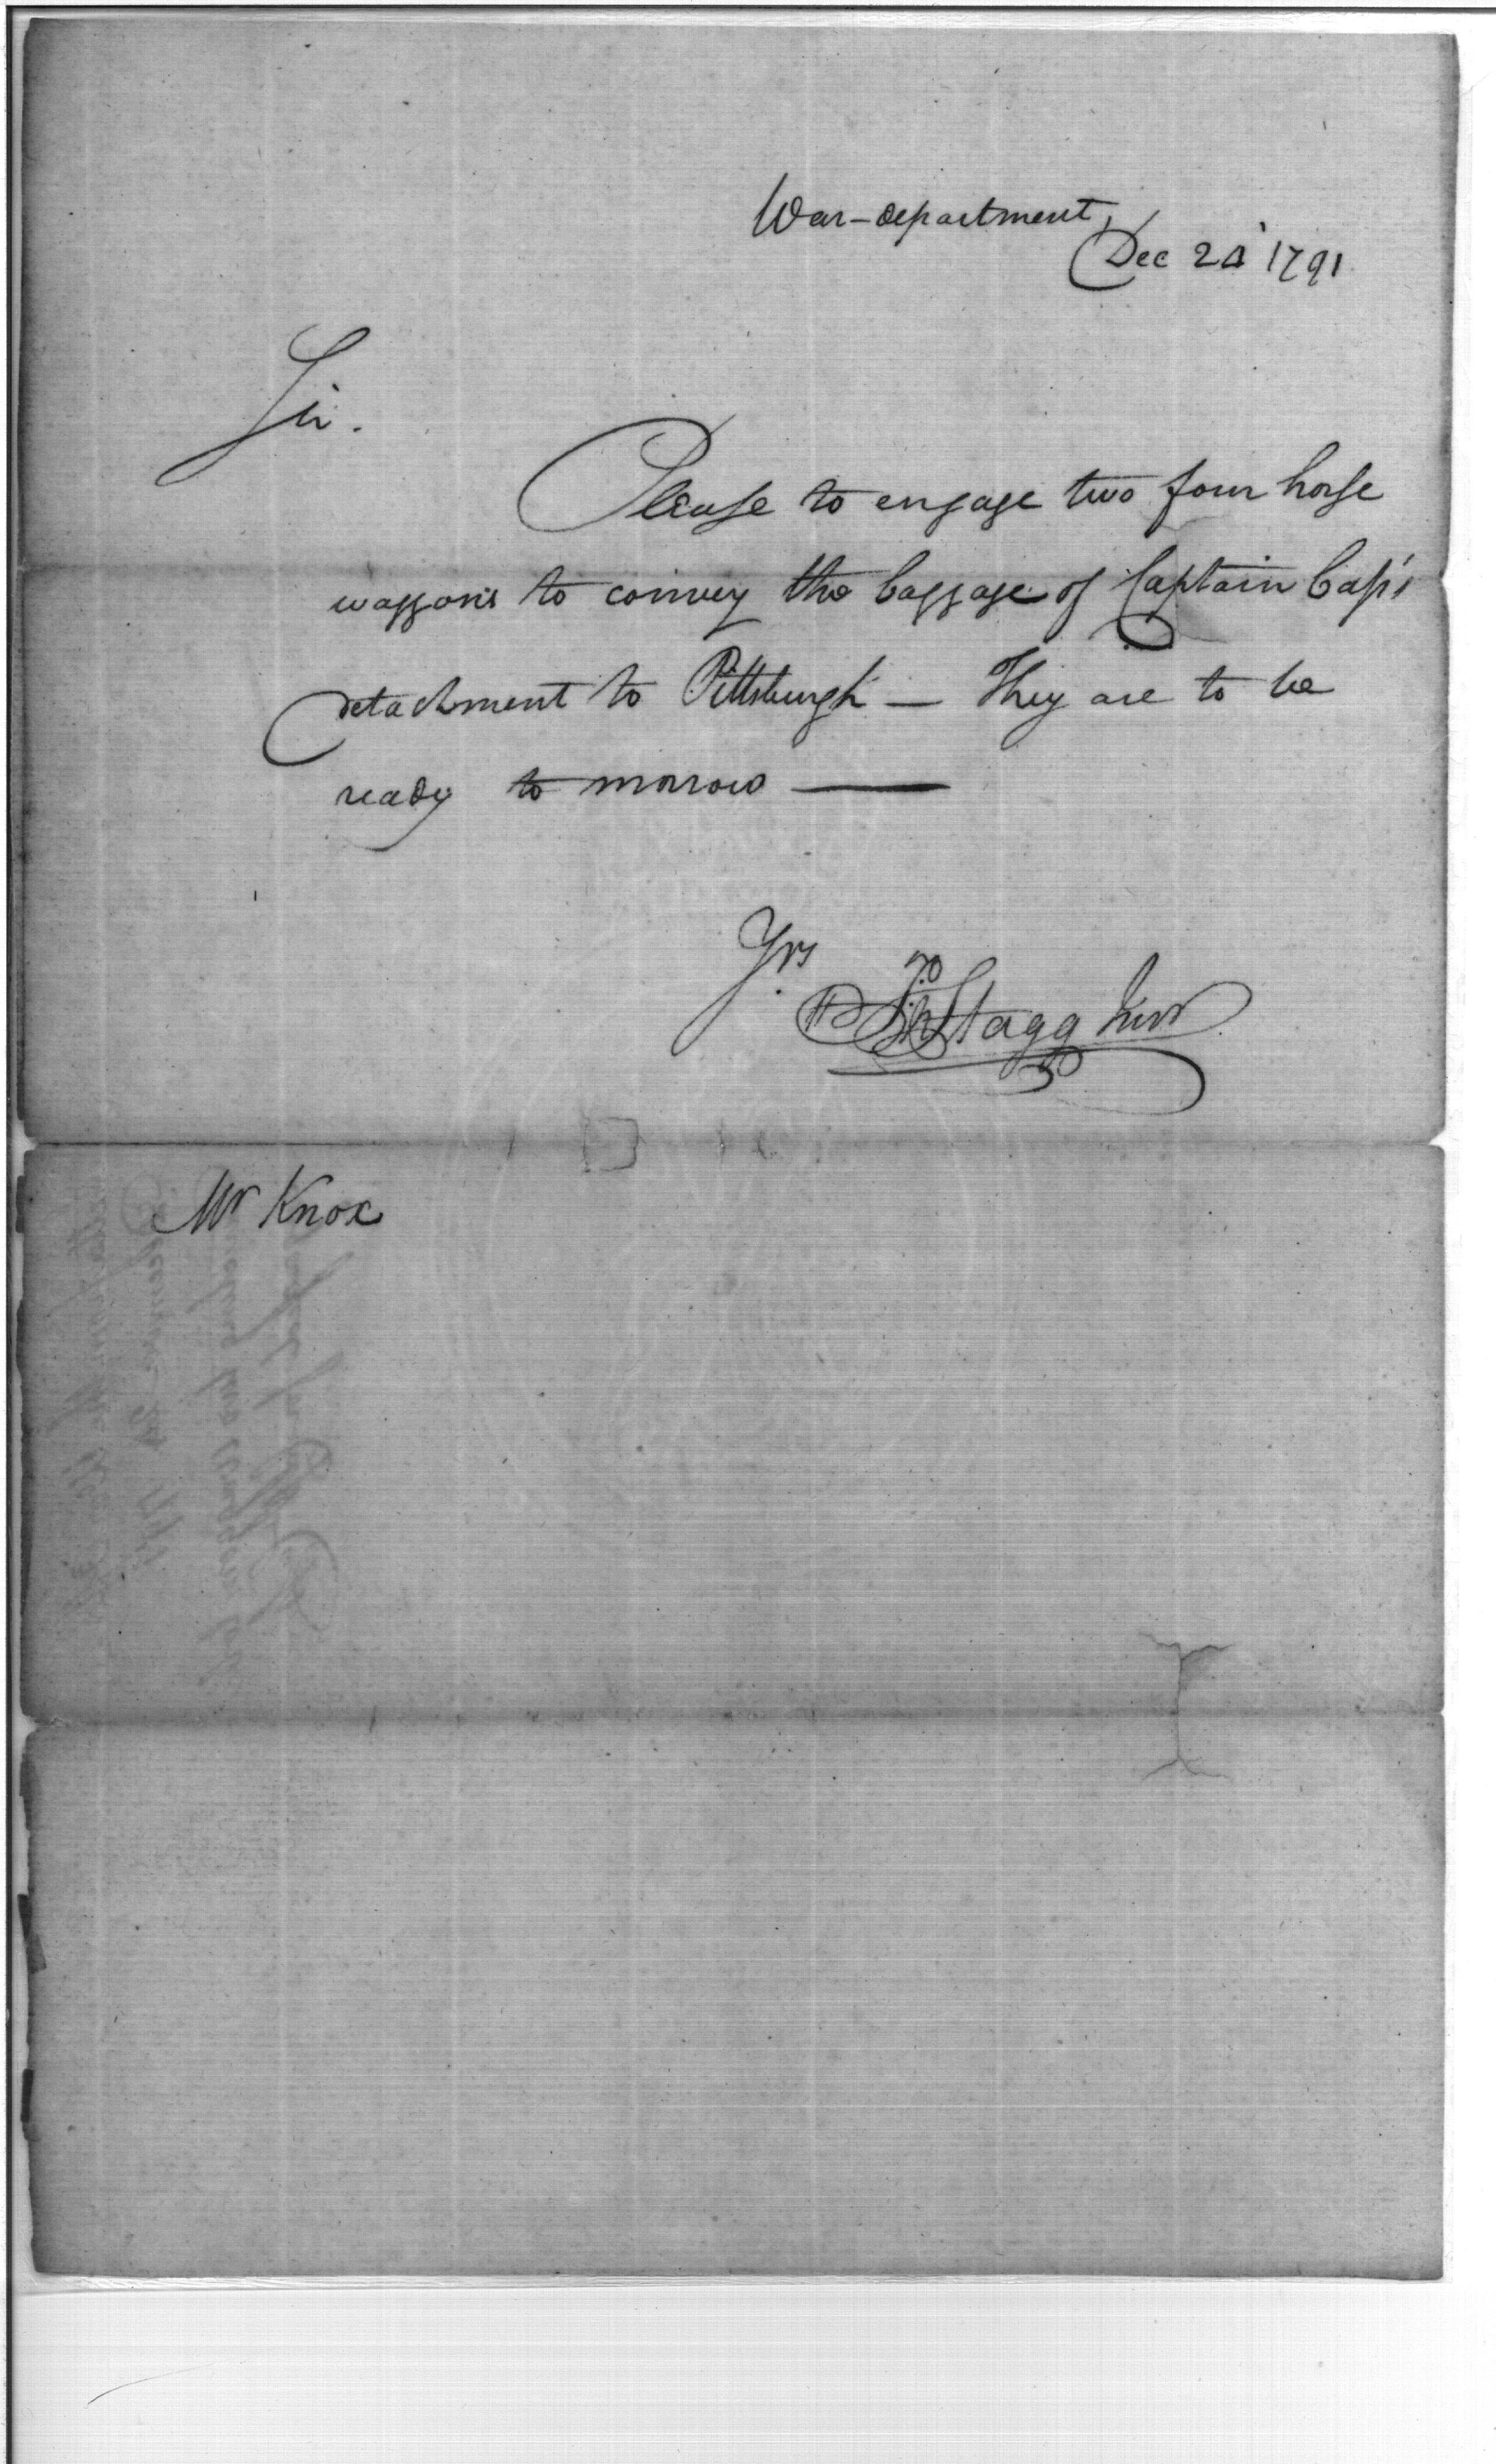 War-department,
Dec 24 1791
Sir.
Please to engage two four horse
waggons to convey the baggage of Captain Cass's
detachment to Pittsburgh — They are to be
ready to morrow —
Yrs
Jno Stagg Junr
Mr Knox